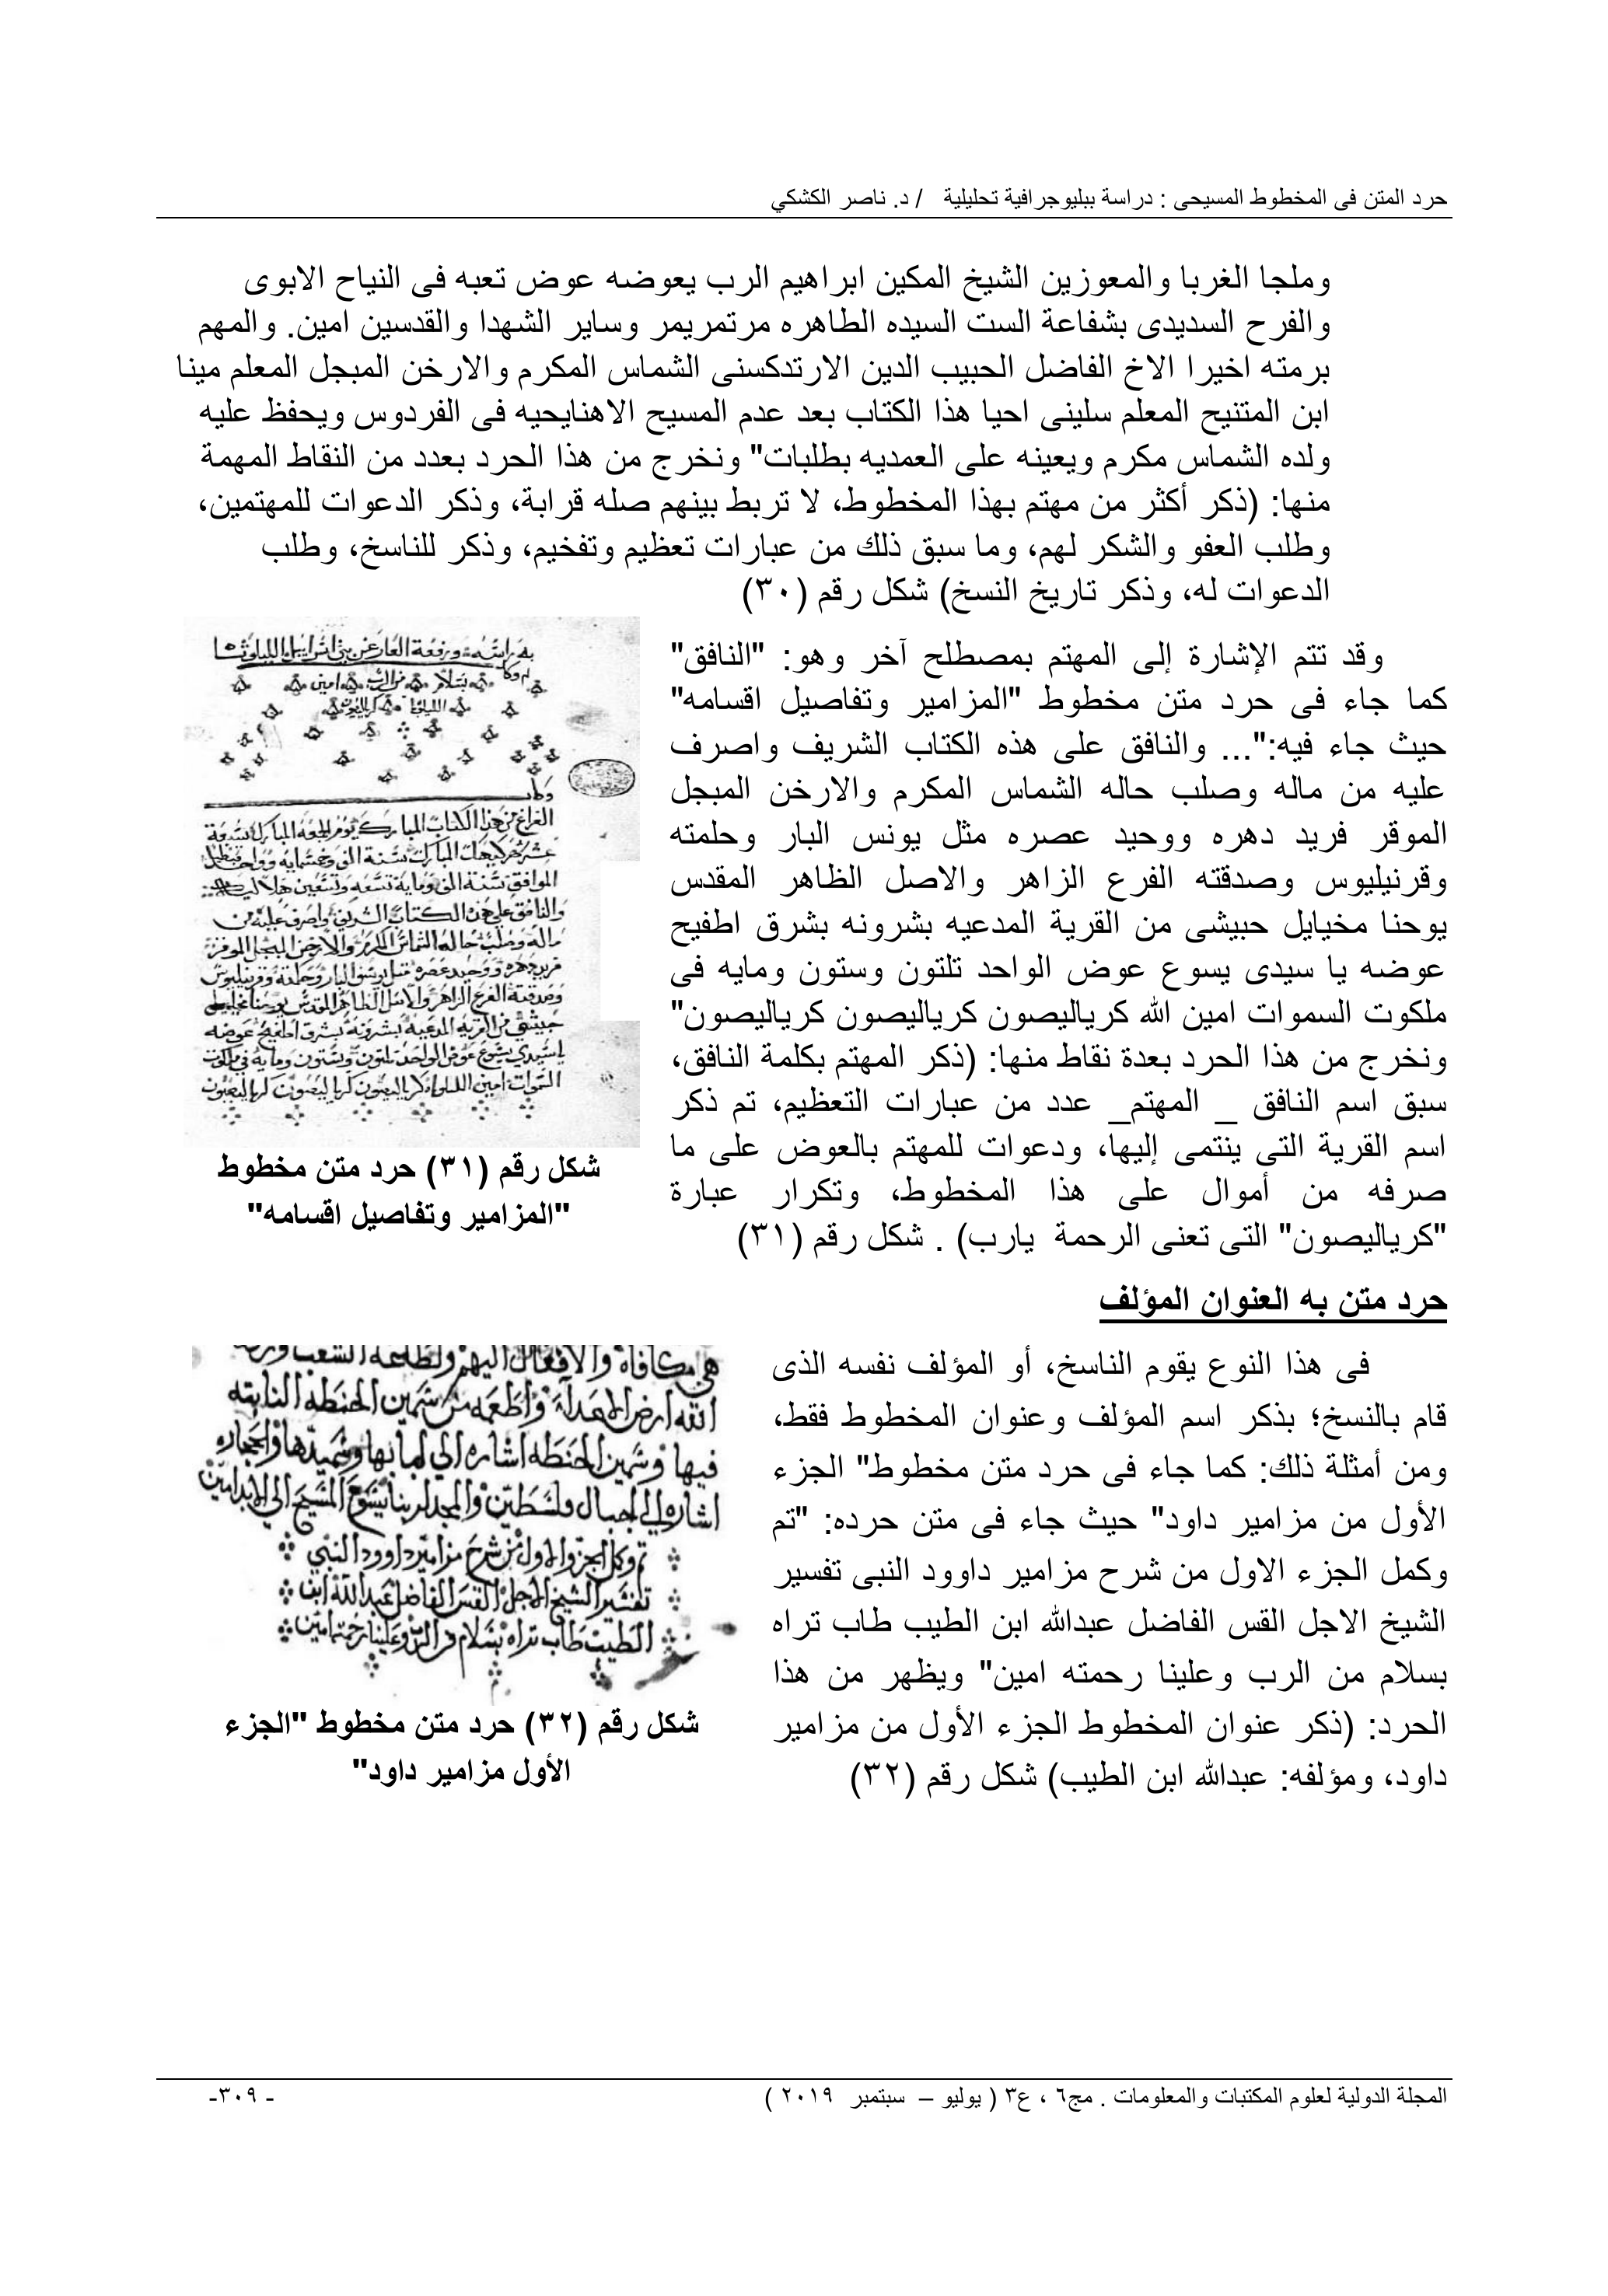 حرد المتن فى المخطوط المسيحى : دراسة ببليوجرافية تحليلية / د. ناصر الكشكي
وملجا الغربا والمعوزين الشيخ المكين ابراهيم الرب يعوضه عوض تعبه فى النياح الابوى
والفرح السديدى بشفاعة الست السيده الطاهره مرتمريمر وساير الشهدا والقدسين امين. والمهم
برمته اخيرا الاخ الفاضل الحبيب الدين الارتدكسنى الشماس المكرم والارخن المبجل المعلم مينا
ابن المتنيح المعلم سلينى احيا هذا الكتاب بعد عدم المسيح الاهنايحيه فى الفردوس ويحفظ عليه
ولده الشماس مكرم ويعينه على العمديه بطلبات" ونخرج من هذا الحرد بعدد من النقاط المهمة
منها: (ذكر أكثر من مهتم بهذا المخطوط، لا تربط بينهم صله قرابة، وذكر الدعوات للمهتمين،
وطلب العفو والشكر لهم، وما سبق ذلك من عبارات تعظيم وتفخيم، وذكر للناسخ، وطلب
الدعوات له، وذكر تاريخ النسخ) شكل رقم (٣٠)
وقد تتم الإشارة إلى المهتم بمصطلح آخر وهو: "النافق"
كما جاء فى حرد متن مخطوط "المزامير وتفاصيل اقسامه"
حيث جاء فيه:"... والنافق على هذه الكتاب الشريف واصرف
عليه من ماله وصلب حاله الشماس المكرم والارخن المبجل
الموقر فريد دهره ووحيد عصره مثل يونس البار وحلمته
وقرنيليوس وصدقته الفرع الزاهر والاصل الظاهر المقدس
يوحنا مخيايل حبيشى من القرية المدعيه بشرونه بشرق اطفيح
عوضه يا سيدى يسوع عوض الواحد تلتون وستون ومايه فى
ملكوت السموات امين الله كرياليصون كرياليصون كرياليصون"
ونخرج من هذا الحرد بعدة نقاط منها: (ذكر المهتم بكلمة النافق،
سبق اسم النافق _ المهتم_ عدد من عبارات التعظيم، تم ذكر
اسم القرية التى ينتمى إليها، ودعوات للمهتم بالعوض على ما
صرفه من أموال على هذا المخطوط، وتكرار عبارة
"كرياليصون" التى تعنى الرحمة يارب) . شكل رقم (٣١)
شكل رقم (٣١) حرد متن مخطوط
"المزامير وتفاصيل اقسامه"
حرد متن به العنوان المؤلف
فى هذا النوع يقوم الناسخ، أو المؤلف نفسه الذى
قام بالنسخ؛ بذكر اسم المؤلف وعنوان المخطوط فقط،
ومن أمثلة ذلك: كما جاء فى حرد متن مخطوط" الجزء
الأول من مزامير داود" حيث جاء فى متن حرده: "تم
وكمل الجزء الاول من شرح مزامير داوود النبى تفسير
الشيخ الاجل القس الفاضل عبدالله ابن الطيب طاب تراه
بسلام من الرب وعلينا رحمته امين" ويظهر من هذا
الحرد: (ذكر عنوان المخطوط الجزء الأول من مزامير
داود، ومؤلفه: عبدالله ابن الطيب) شكل رقم (٣٢)
تم وكمل الجزو الاول من شرح مزامير داوود النبي
تفسير الشيخ الاجل القس الفاضل عبدالله ابن
الطيب طاب تراه بسلام من الرب وعلينا رحمته امين
شكل رقم (٣٢) حرد متن مخطوط "الجزء
الأول مزامير داود"
المجلة الدولية لعلوم المكتبات والمعلومات . مج٦ ، ع٣ ( يوليو – سبتمبر ٢٠١٩ )
- ٣٠٩-